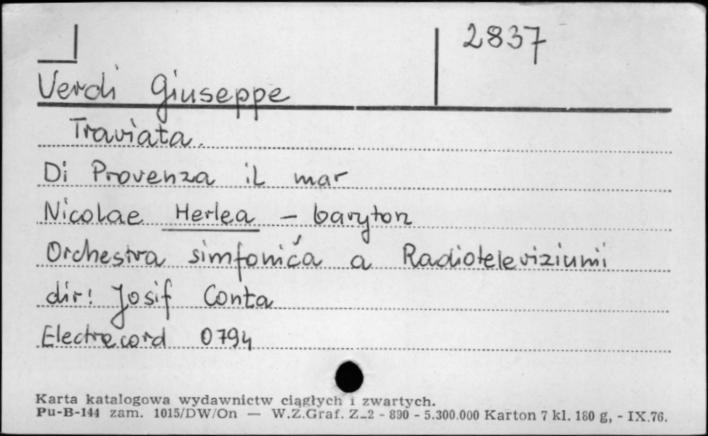 2837
Verdi Giuseppe
Traviata.
Di Provenza il mar
Nicolae Herlea – baryton
Orchestra simfonića a Radioteleviziunii
dir: Josif Conta
Electrecord 0794
Karta katalogowa wydawnictw ciągłych i zwartych.
Pu-B-144 zam. 1015/DW/On — W.Z.Graf. Z-2 - 890 - 5.300.000 Karton 7 kl. 180 g, - IX.76.